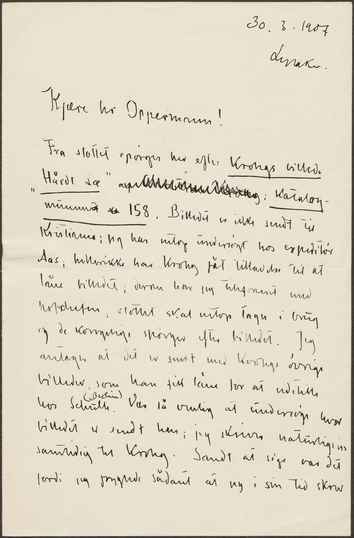 30. 3. 1907
Lysaker.
Kjære hr Oppermann!
Fra slottet spørges her efter Krohgs billede
"Hårdt læ" Katalog-
nummer 158. Billedet er ikke sendt til
Kristiania; jeg har idag undersøgt hos expeditør
Aas, hvis Krohg fåt tilladelse til at
låne billedet, derom har jeg telegrafert med
hofchefen, slottet skal netop tages i brug
og de kongelige spørger efter billedet. Jeg
antager at det er sendt med Krohgs øvrige
billeder, som han fik låne for at udstille
hos Schulte (Berlin). Vær så venlig at undersøge hvor
billedet er sendt hen; jeg skriver naturligvis
samtidig til Krohg. Sandt at sige var det
fordi jeg sådant at jeg i sin tid skrev